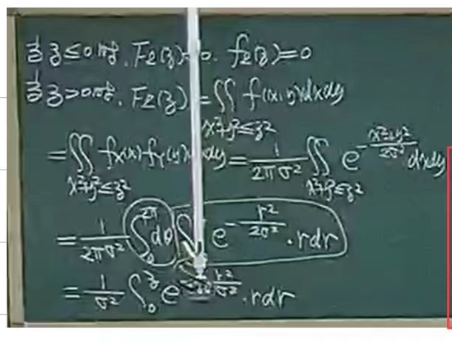 当z≤0时, F_Z(z)=0. f_Z(z)=0
当z>0时, F_Z(z)=∬_{x²+y²≤z²} f(x,y)dxdy
=∬_{x²+y²≤z²} f_X(x)f_Y(y)dxdy=\frac{1}{2πσ²}∬_{x²+y²≤z²} e^{-\frac{x²+y²}{2σ²}}dxdy
=\frac{1}{2πσ²}∫_0^{2π}dθ∫ e^{-\frac{r²}{2σ²}}·rdr
=\frac{1}{σ²}∫_0^z e^{-\frac{r²}{2σ²}}·rdr